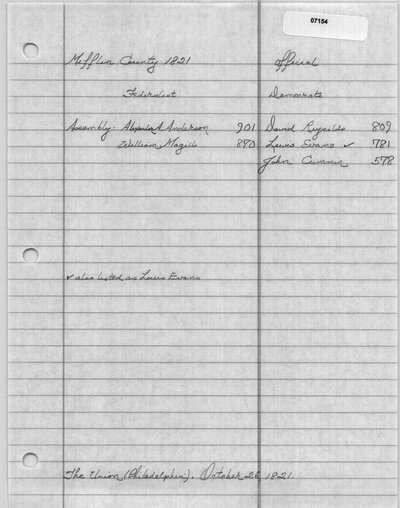 07154
Mifflin County 1821 Official
Federalist Democrats
Assembly: Alexander A. Anderson 901 David Reynolds 809
William Magill 870 Lewis Evans ✓ 781
John Cummin 578
✓ also listed as Louis Evans
The Union (Philadelphia). October 26, 1821.